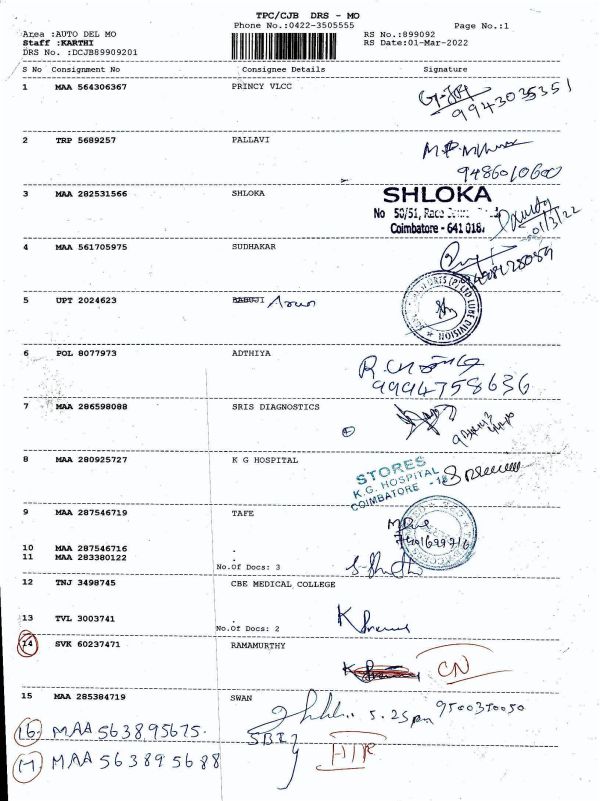 TPC/CJB DRS - MO
Phone No.:0422-3505555 Page No.:1
Area :AUTO DEL MO RS No.:899092
Staff :KARTHI RS Date:01-Mar-2022
DRS No. :DCJB89909201
S No Consignment No Consignee Details Signature
1 MAA 564306367 PRINCY VLCC
9943035351
2 TRP 5689257 PALLAVI
9486010600
3 MAA 282531566 SHLOKA SHLOKA
No 50/51, Race
Coimbatore - 641 018. 01/3/22
4 MAA 561705975 SUDHAKAR
5 UPT 2024623 BABUJI Arun
LUBE DIVISION
6 POL 8077973 ADTHIYA
9994758636
7 MAA 286598088 SRIS DIAGNOSTICS
8 MAA 280925727 K G HOSPITAL
STORES
K.G. HOSPITAL
COIMBATORE - 18
9 MAA 287546719 TAFE
10 MAA 287546716 .
11 MAA 283380122 .
No.Of Docs: 3
12 TNJ 3498745 CBE MEDICAL COLLEGE
13 TVL 3003741 .
No.Of Docs: 2
14 SVK 60237471 RAMAMURTHY
CN
15 MAA 285384719 SWAN
5.25pm 9500350050
16 MAA 563895675. SBI
17 MAA 563895688